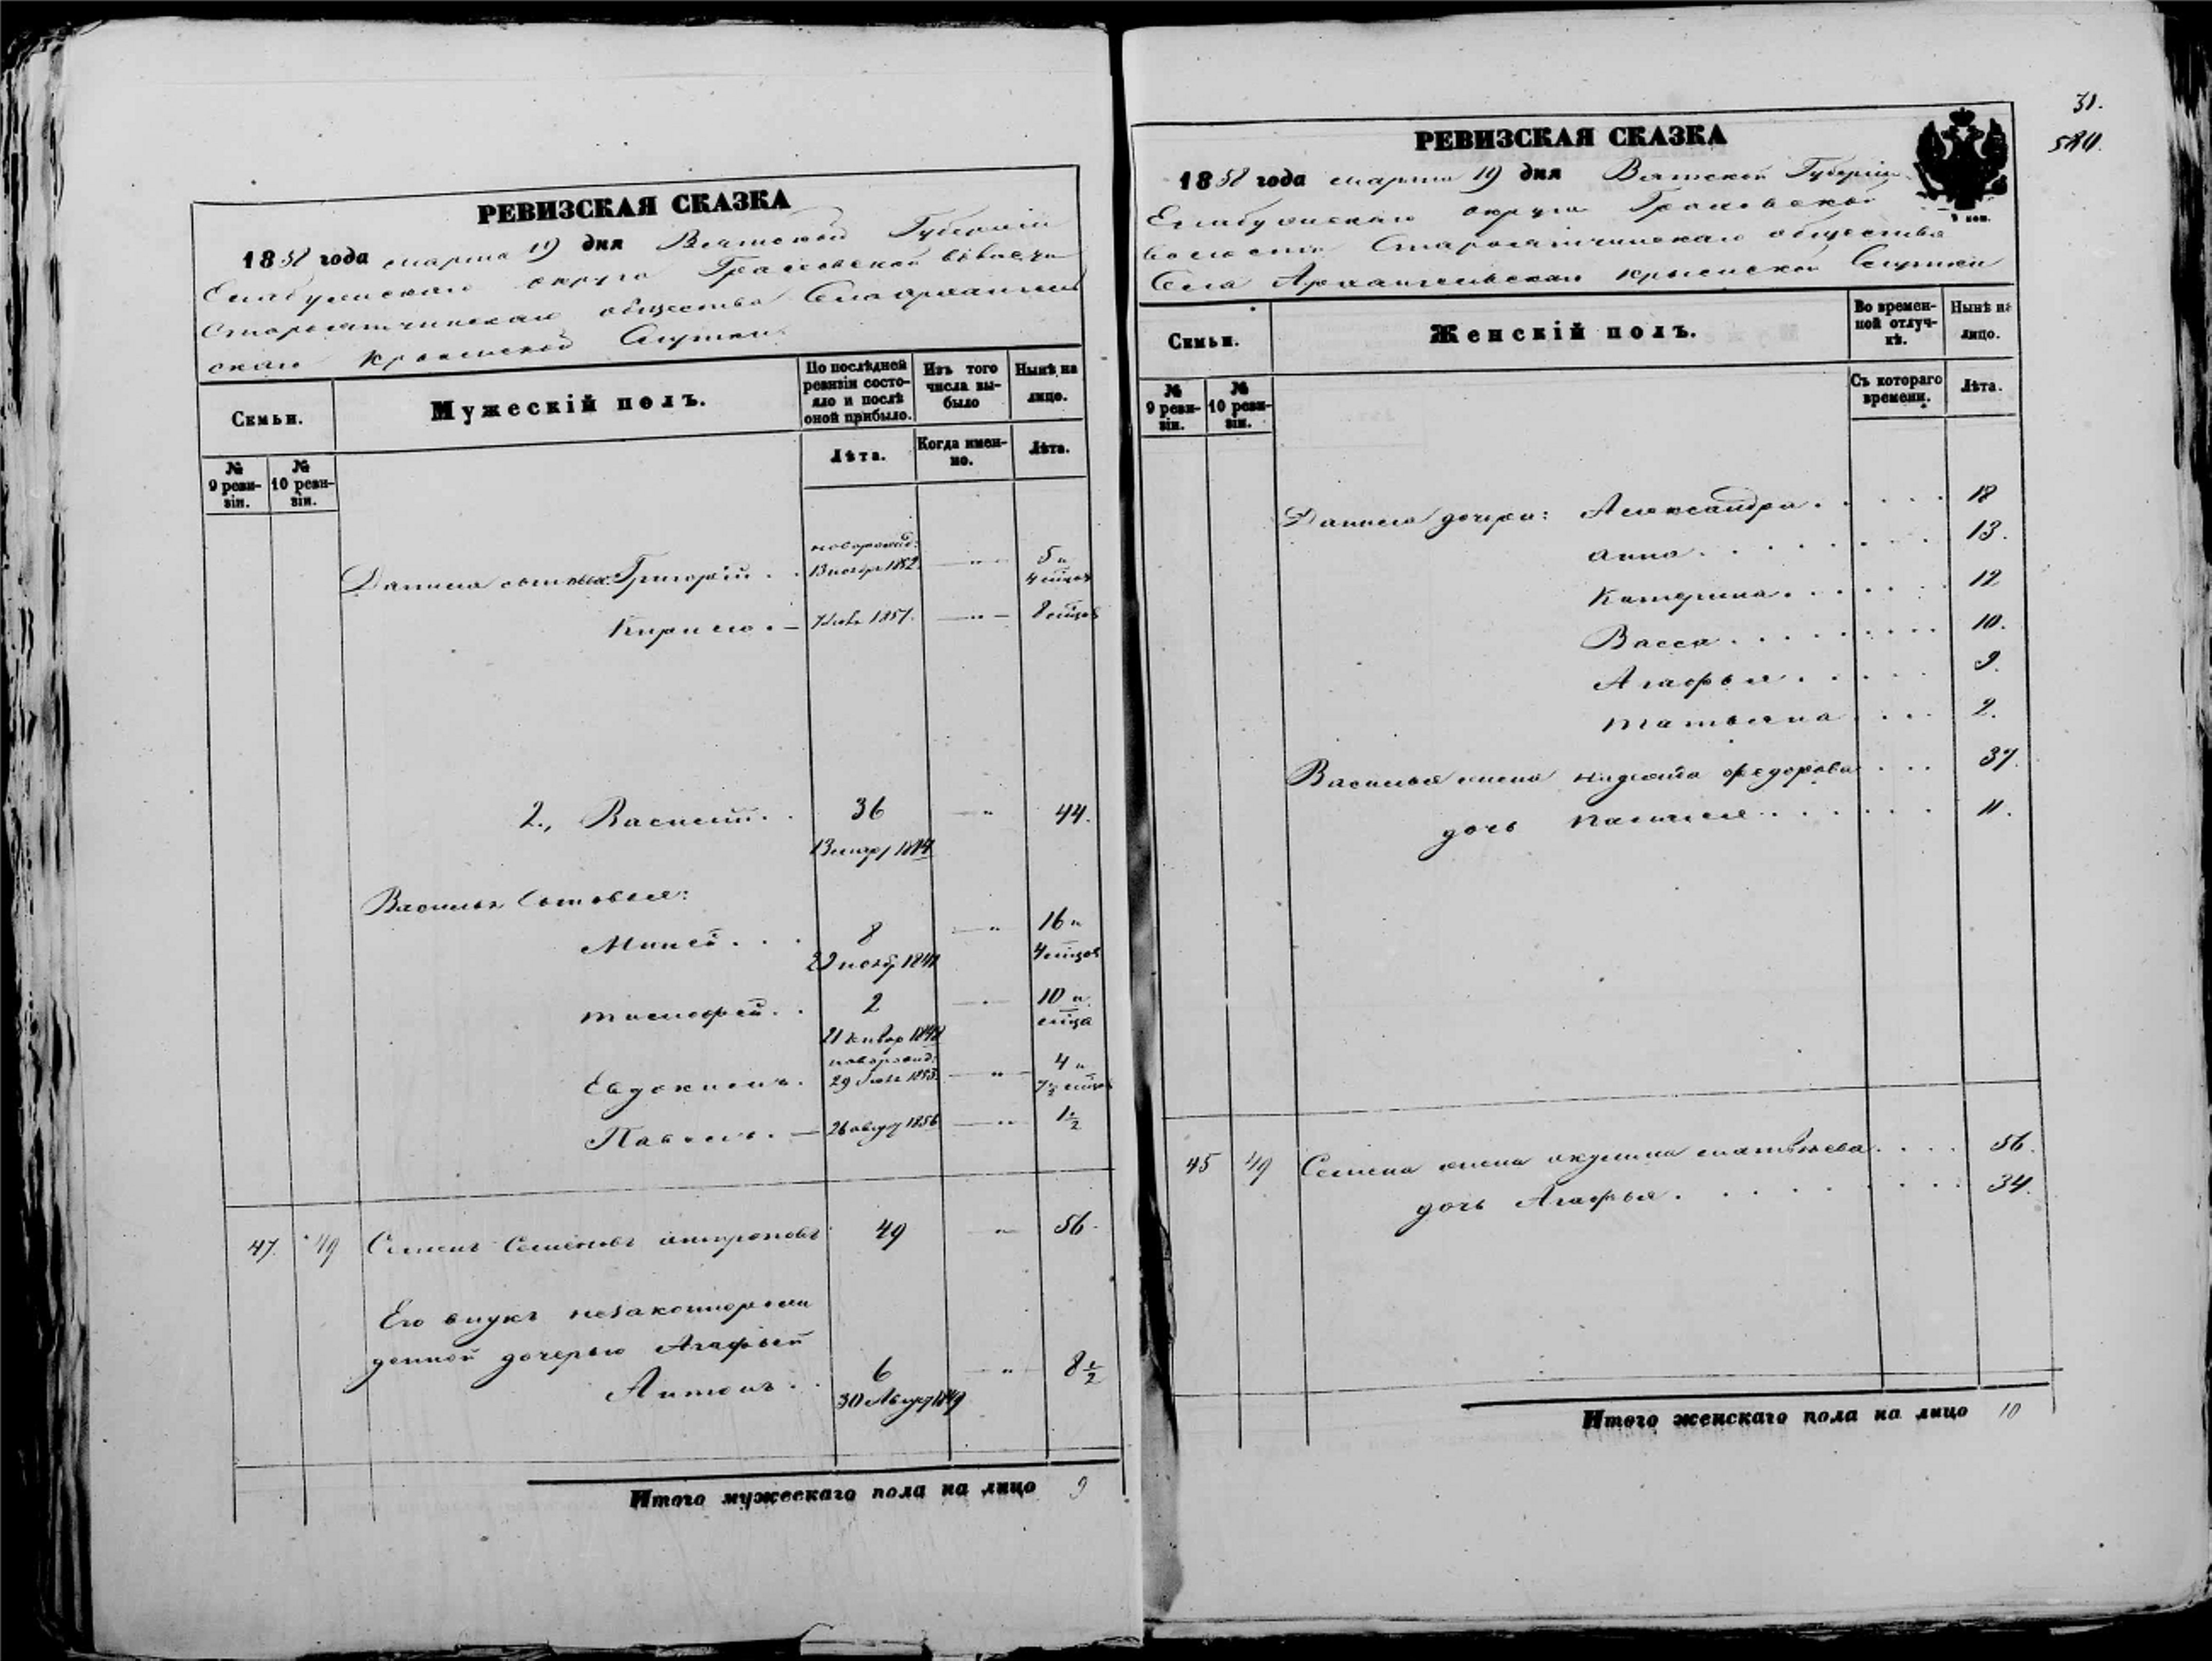 РЕВИЗСКАЯ СКАЗКА
1858 года марта 19 дня Вятской Губернiи
Елабужскаго округа Граховской волости
Старояпчинскаго общества Села Архангель
скаго Крымской Слутки
Семьи.
Мужескiй полъ.
По послѣдней ревизiи состо-
яло и послѣ оной прибыло.
Изъ того числа вы-
было
Нынѣ на лицо.
№ 9 реви-
зiи.
№ 10 реви-
зiи.
Лѣта.
Когда имен-
но.
Лѣта.
Данила сыновья: Григорiй . . новорожд: 13 ноябр 1852 — " — 5 и 4 мѣцов
Кирило . — 7 Iюля 1857. — " — 8 мѣцов
2., Василiй . . 36 — " 44.
Василья Сыновья:
. . . 8 — " 16 и 4 мѣцов
Тимофей . . 2 — " — 10 и мѣца
Евдокимъ . новорожд: 29 Iюля 1853. — " — 4 и 7½ мѣцов
Павелъ . — 26 авгус 1856 — " — 1½
47. 49 Семенъ Семеновъ Антроповъ 49 — " 56.
Его внукъ незаконнорож
денной дочерью Агафьей
Антонъ . . 6 — " 8½
30 Август 1849
Итого мужескаго пола на лицо 9
31.
РЕВИЗСКАЯ СКАЗКА
1858 года марта 19 дня Вятской Губернiи
9 коп.
Елабужскаго округа Граховской
волости Старояпчинскаго общества
Села Архангельскаго Крымской Слутки
Семьи.
Женскiй полъ.
Во времен-
ной отлуч-
кѣ.
Нынѣ на лицо.
№ 9 реви-
зiи.
№ 10 реви-
зiи.
Съ котораго времени.
Лѣта.
Данила дочери: Александра . . . . . 18
Анна . . . . . . . . 13.
Катерина . . . . . . 12
Васса . . . . . . . . . 10.
Агафья . . . . . 9.
Татьяна . . . 2.
Василья жена Надежда Федорова . . . 37.
дочь . . . . . . 11.
45 49 Семена жена Акулина Матвѣева . . . . 56.
дочь Агафья . . . . . . . . . 34.
Итого женскаго пола на лицо 10